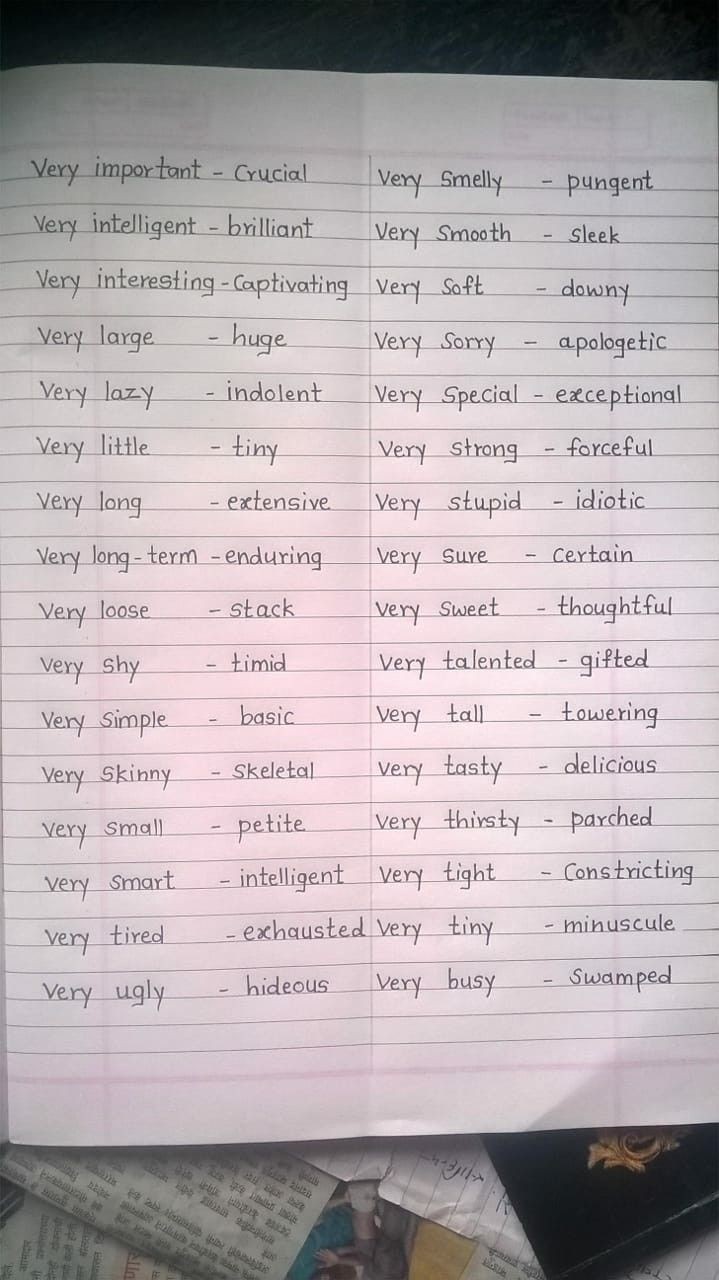 Very important - Crucial
Very intelligent - brilliant
Very interesting - Captivating
Very large - huge
Very lazy - indolent
Very little - tiny
Very long - extensive
Very long-term - enduring
Very loose - stack
Very shy - timid
Very simple - basic
Very skinny - skeletal
Very small - petite
Very smart - intelligent
Very tired - exhausted
Very ugly - hideous
Very smelly - pungent
Very smooth - sleek
Very soft - downy
Very sorry - apologetic
Very special - exceptional
Very strong - forceful
Very stupid - idiotic
Very sure - certain
Very sweet - thoughtful
Very talented - gifted
Very tall - towering
Very tasty - delicious
Very thirsty - parched
Very tight - Constricting
Very tiny - minuscule
Very busy - Swamped